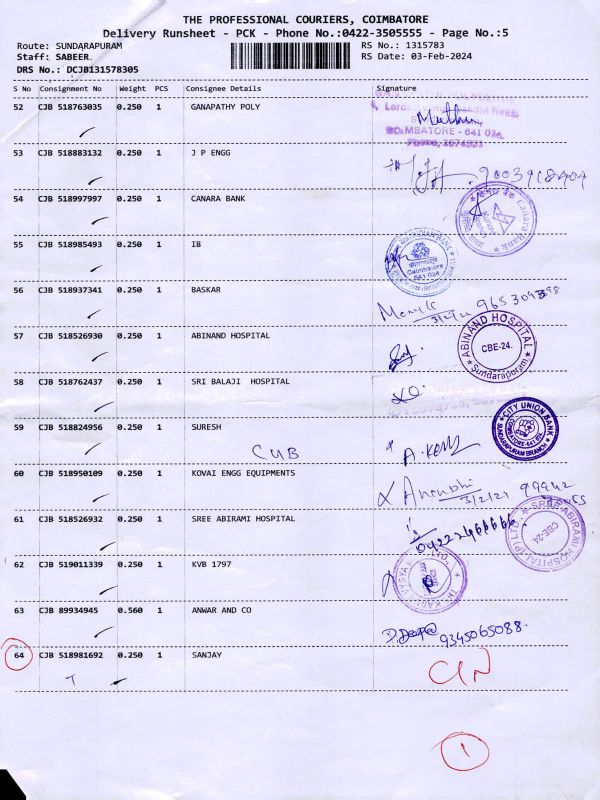 THE PROFESSIONAL COURIERS, COIMBATORE
Delivery Runsheet - PCK - Phone No.:0422-3505555 - Page No.:5
Route: SUNDARAPURAM RS No.: 1315783
Staff: SABEER RS Date: 03-Feb-2024
DRS No.: DCJB131578305
S No Consignment No Weight PCS Consignee Details Signature
52 CJB 518763035 0.250 1 GANAPATHY POLY
COIMBATORE - 641 024
53 CJB 518883132 0.250 1 J P ENGG
54 CJB 518997997 0.250 1 CANARA BANK
Canara Bank
55 CJB 518985493 0.250 1 IB
Coimbatore
641 024
56 CJB 518937341 0.250 1 BASKAR
57 CJB 518526930 0.250 1 ABINAND HOSPITAL
ABINAND HOSPITAL
CBE-24.
Sundarapuram
58 CJB 518762437 0.250 1 SRI BALAJI HOSPITAL
59 CJB 518824956 0.250 1 SURESH
CUB
CITY UNION BANK
SUNDARAPURAM BRANCH
60 CJB 518950109 0.250 1 KOVAI ENGG EQUIPMENTS
3/2/24
61 CJB 518526932 0.250 1 SREE ABIRAMI HOSPITAL
SREE ABIRAMI HOSPITAL (P) LTD
CBE-24
62 CJB 519011339 0.250 1 KVB 1797
63 CJB 89934945 0.560 1 ANWAR AND CO
9345065088
64 CJB 518981692 0.250 1 SANJAY
T
1